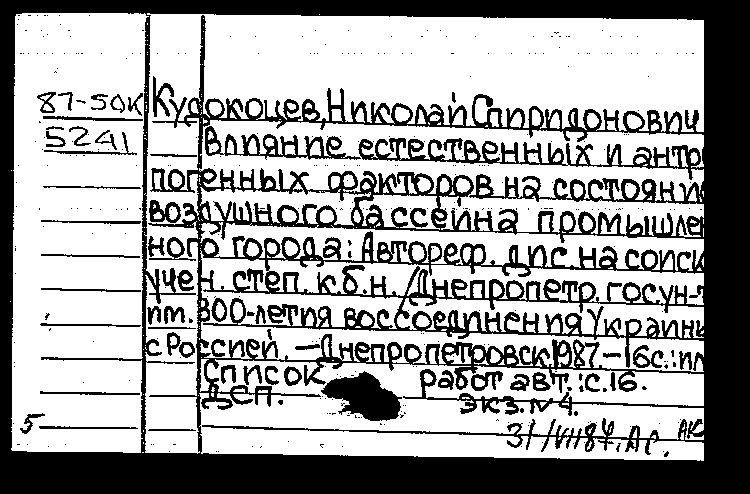 87-50К Кудокоцев, Николай Спиридонович
5241 Влияние естественных и антро
погенных факторов на состояние
воздушного бассейна промышлен
ного города: Автореф. дис. на соиск
учен. степ. к.б.н. / Днепропетр. гос. ун-т
им. 300-летия воссоединения Украины
с Россией. — Днепропетровск, 1987. — 16 с.: ил
Список работ авт.: с. 16.
ДСП. Экз. N 4.
5 31/VII 87. Ас. АК